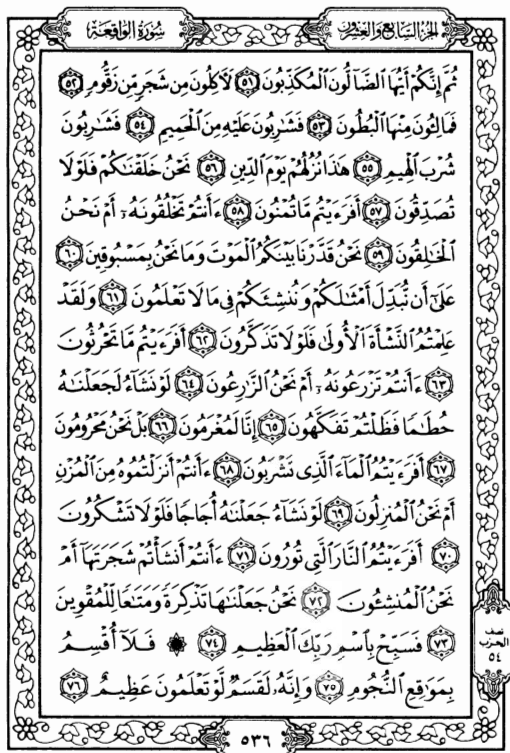 الجزء السابع والعشرون
سورة الواقعة
ثُمَّ إِنَّكُمْ أَيُّهَا الضَّآلُّونَ الْمُكَذِّبُونَ ٥١ لَآكِلُونَ مِن شَجَرٍ مِّن زَقُّومٍ ٥٢
فَمَالِئُونَ مِنْهَا الْبُطُونَ ٥٣ فَشَٰرِبُونَ عَلَيْهِ مِنَ الْحَمِيمِ ٥٤ فَشَٰرِبُونَ
شُرْبَ الْهِيمِ ٥٥ هَٰذَا نُزُلُهُمْ يَوْمَ الدِّينِ ٥٦ نَحْنُ خَلَقْنَٰكُمْ فَلَوْلَا
تُصَدِّقُونَ ٥٧ أَفَرَءَيْتُم مَّا تُمْنُونَ ٥٨ ءَأَنتُمْ تَخْلُقُونَهُۥٓ أَمْ نَحْنُ
الْخَٰلِقُونَ ٥٩ نَحْنُ قَدَّرْنَا بَيْنَكُمُ الْمَوْتَ وَمَا نَحْنُ بِمَسْبُوقِينَ ٦٠
عَلَىٰٓ أَن نُّبَدِّلَ أَمْثَٰلَكُمْ وَنُنشِئَكُمْ فِي مَا لَا تَعْلَمُونَ ٦١ وَلَقَدْ
عَلِمْتُمُ النَّشْأَةَ الْأُولَىٰ فَلَوْلَا تَذَكَّرُونَ ٦٢ أَفَرَءَيْتُم مَّا تَحْرُثُونَ
٦٣ ءَأَنتُمْ تَزْرَعُونَهُۥٓ أَمْ نَحْنُ الزَّٰرِعُونَ ٦٤ لَوْ نَشَآءُ لَجَعَلْنَٰهُ
حُطَٰمًا فَظَلْتُمْ تَفَكَّهُونَ ٦٥ إِنَّا لَمُغْرَمُونَ ٦٦ بَلْ نَحْنُ مَحْرُومُونَ
٦٧ أَفَرَءَيْتُمُ الْمَآءَ الَّذِي تَشْرَبُونَ ٦٨ ءَأَنتُمْ أَنزَلْتُمُوهُ مِنَ الْمُزْنِ
أَمْ نَحْنُ الْمُنزِلُونَ ٦٩ لَوْ نَشَآءُ جَعَلْنَٰهُ أُجَاجًا فَلَوْلَا تَشْكُرُونَ
٧٠ أَفَرَءَيْتُمُ النَّارَ الَّتِي تُورُونَ ٧١ ءَأَنتُمْ أَنشَأْتُمْ شَجَرَتَهَآ أَمْ
نَحْنُ الْمُنشِـُٔونَ ٧٢ نَحْنُ جَعَلْنَٰهَا تَذْكِرَةً وَمَتَٰعًا لِّلْمُقْوِينَ
٧٣ فَسَبِّحْ بِاسْمِ رَبِّكَ الْعَظِيمِ ٧٤ ۞ فَلَآ أُقْسِمُ
بِمَوَٰقِعِ النُّجُومِ ٧٥ وَإِنَّهُۥ لَقَسَمٌ لَّوْ تَعْلَمُونَ عَظِيمٌ ٧٦
نصف
الحزب
٥٤
٥٣٦